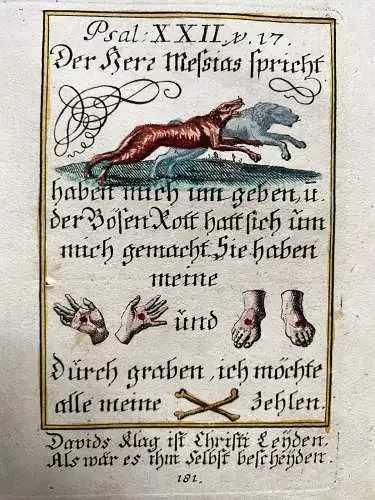 Psal: XXII. v. 17.
Der Herr Messias spricht
haben mich um geben, u.
der Bösen Rott hatt sich üm
mich gemacht. Sie haben
meine
ünd
Dürch graben, ich möchte
alle meine zehlen.
Davids Klag ist Christi Leÿden,
Als wär es ihm selbst bescheÿden.
181.